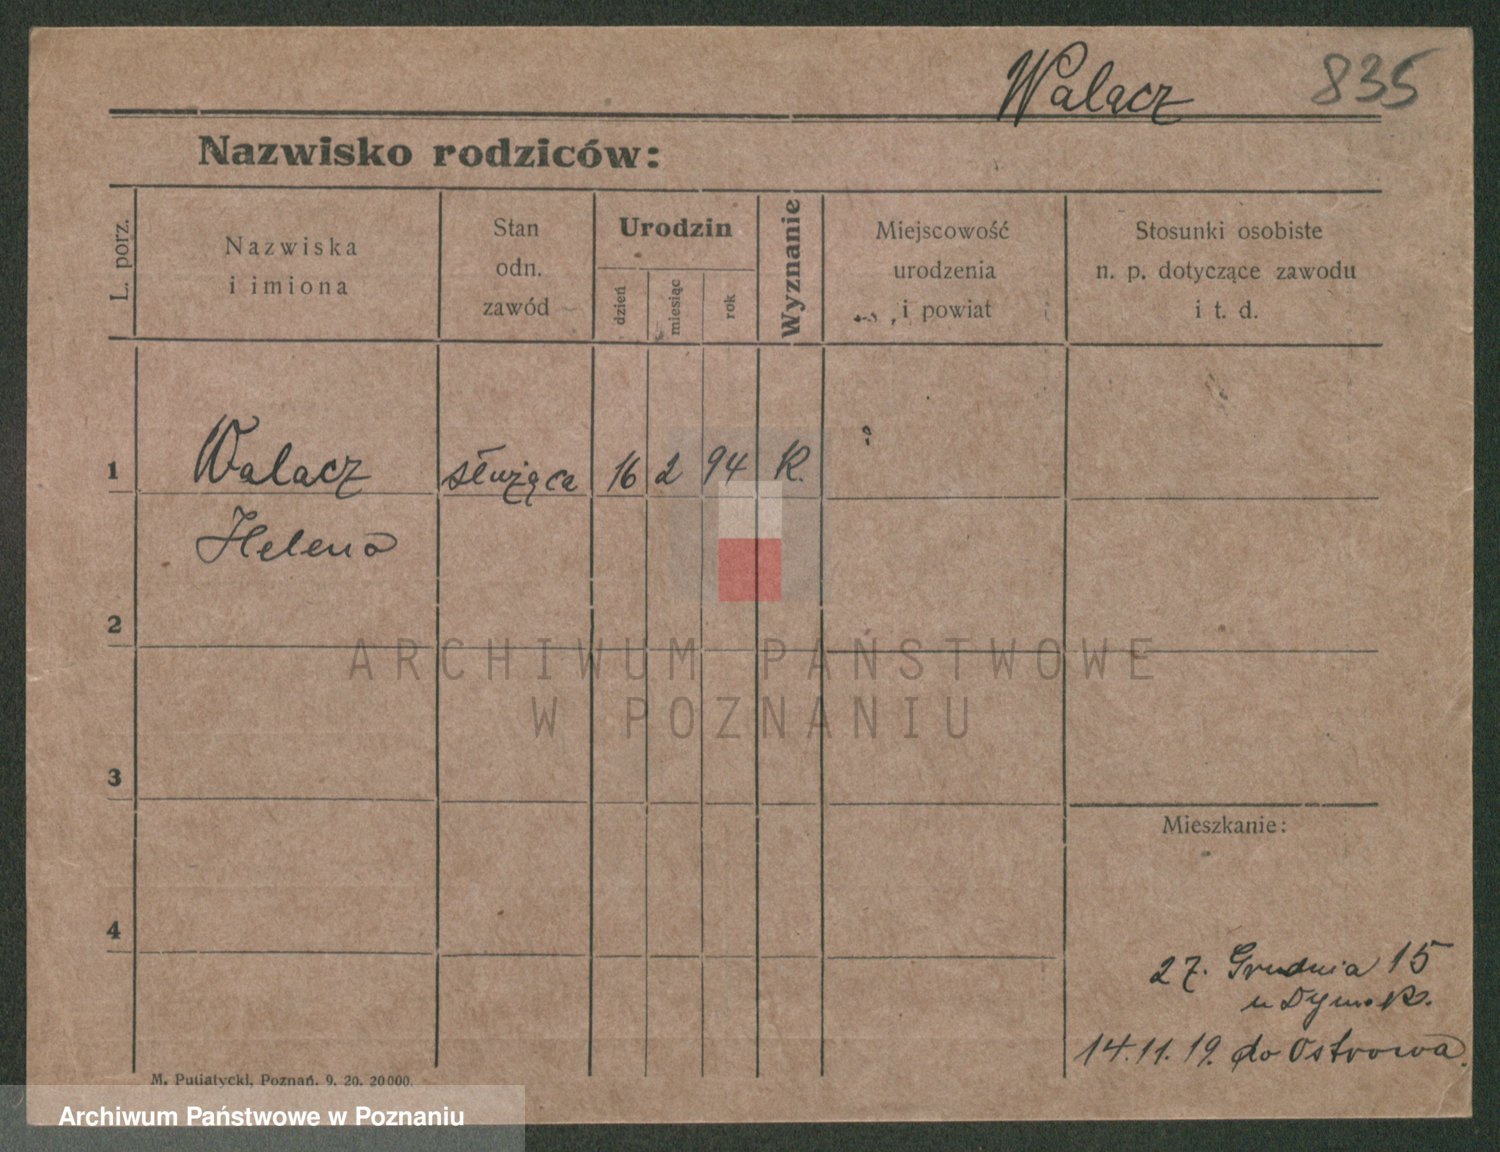 Walacz 835
Nazwisko rodziców:
L. porz.
Nazwiska
i imiona
Stan
odn.
zawód
Urodzin
dzień
miesiąc
rok
Wyznanie
Miejscowość
urodzenia
i powiat
Stosunki osobiste
n. p. dotyczące zawodu
i t. d.
1 Walacz służąca 16 2 94 K.
Helena
2
ARCHIWUM PAŃSTWOWE
W POZNANIU
3
Mieszkanie:
4
27. Grudnia 15
u Dymek.
14.11.19. do Ostrowa.
M. Putiatycki, Poznań. 9. 20. 20000.
Archiwum Państwowe w Poznaniu